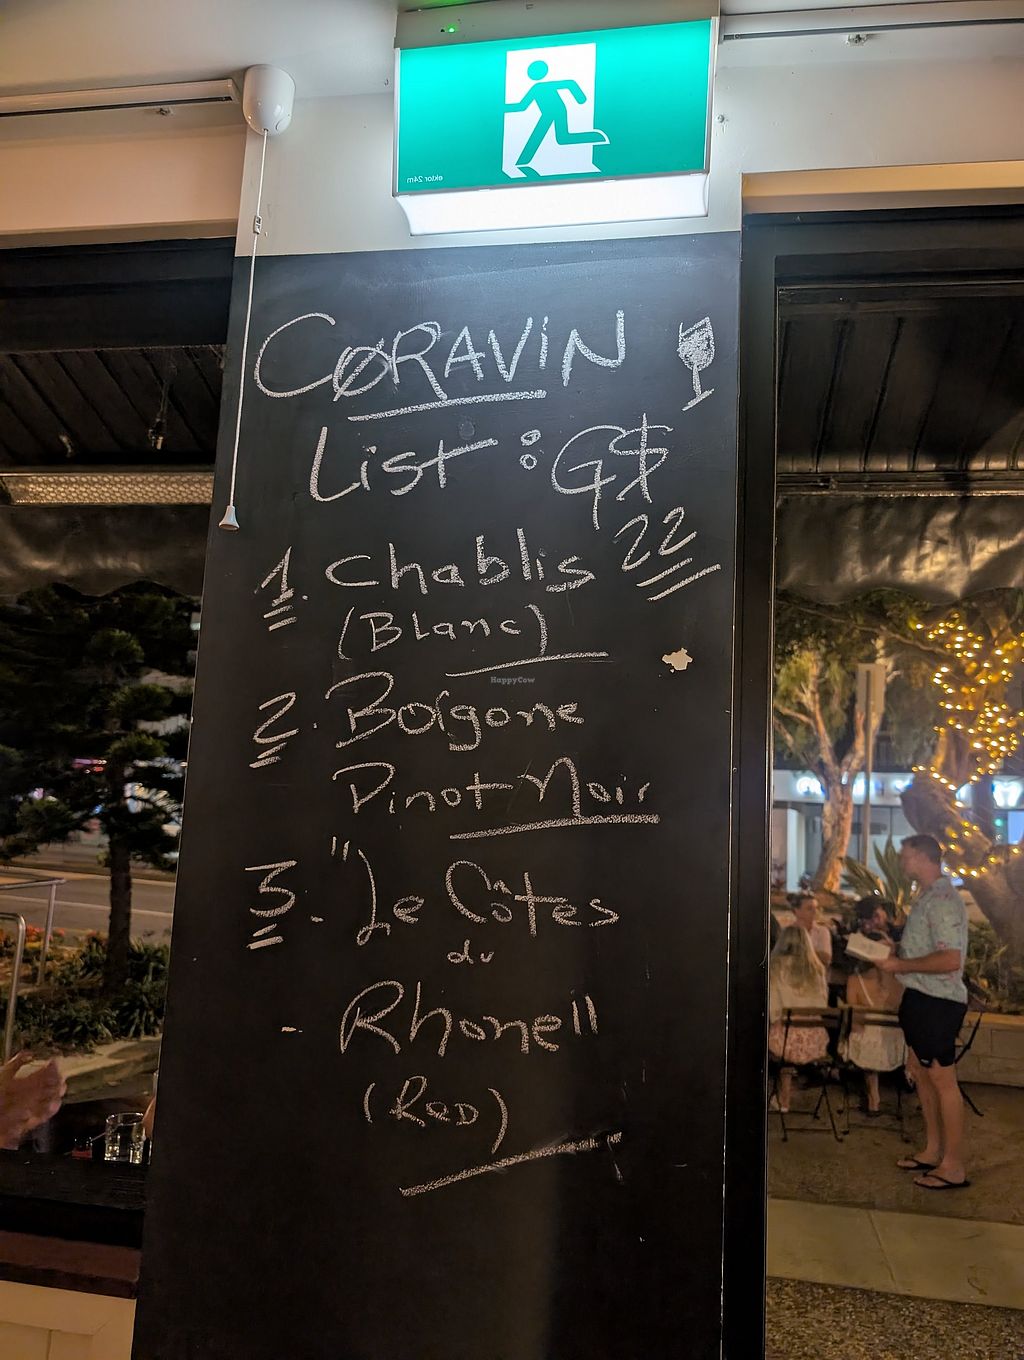 ektor 24m
CØRAVIN
List : G$
22
1. Chablis
(Blanc)
HappyCow
2. Boígone
Pinot Noir
3. "Le Côtes
du
- Rhone"
(Red)